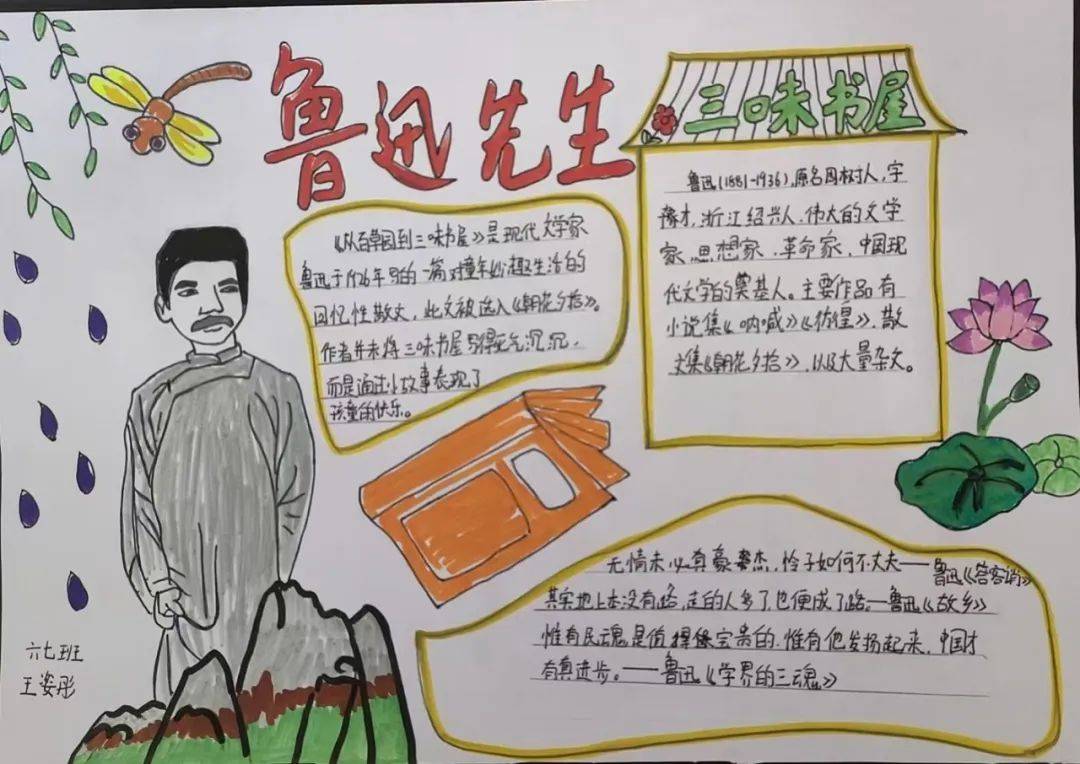 鲁迅先生
三味书屋
《从百草园到三味书屋》是现代文学家
鲁迅于1926年写的一篇对童年妙趣生活的
回忆性散文，此文被选入《朝花夕拾》。
作者并未将三味书屋写得死气沉沉，
而是通过小故事表现了
孩童的快乐。
鲁迅(1881-1936)，原名周树人，字
豫才，浙江绍兴人，伟大的文学
家、思想家、革命家，中国现
代文学的奠基人。主要作品有
小说集《呐喊》《彷徨》，散
文集《朝花夕拾》，以及大量杂文。
无情未必真豪杰，怜子如何不丈夫——鲁迅《答客诮》
其实地上本没有路，走的人多了，也便成了路。—鲁迅《故乡》
惟有民魂是值得宝贵的，惟有他发扬起来，中国才
有真进步。——鲁迅《学界的三魂》
六七班
王姿彤